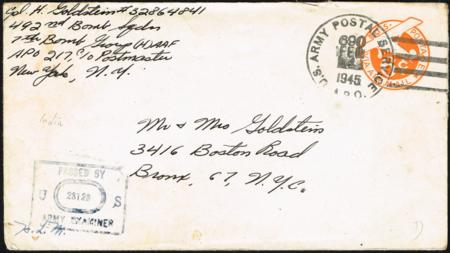 Cpl. H. Goldstein # 32864841
492nd Bomb. Sqdn
7th Bomb. Group (H) AAF
APO 217, C/o Postmaster
New York, N.Y.
U.S. ARMY POSTAL SERVICE
690
FEB
1945
A.P.O.
India
Mr & Mrs Goldstein
3416 Boston Road
Bronx, 67, N.Y.C.
PASSED BY
U 28128 S
ARMY EXAMINER